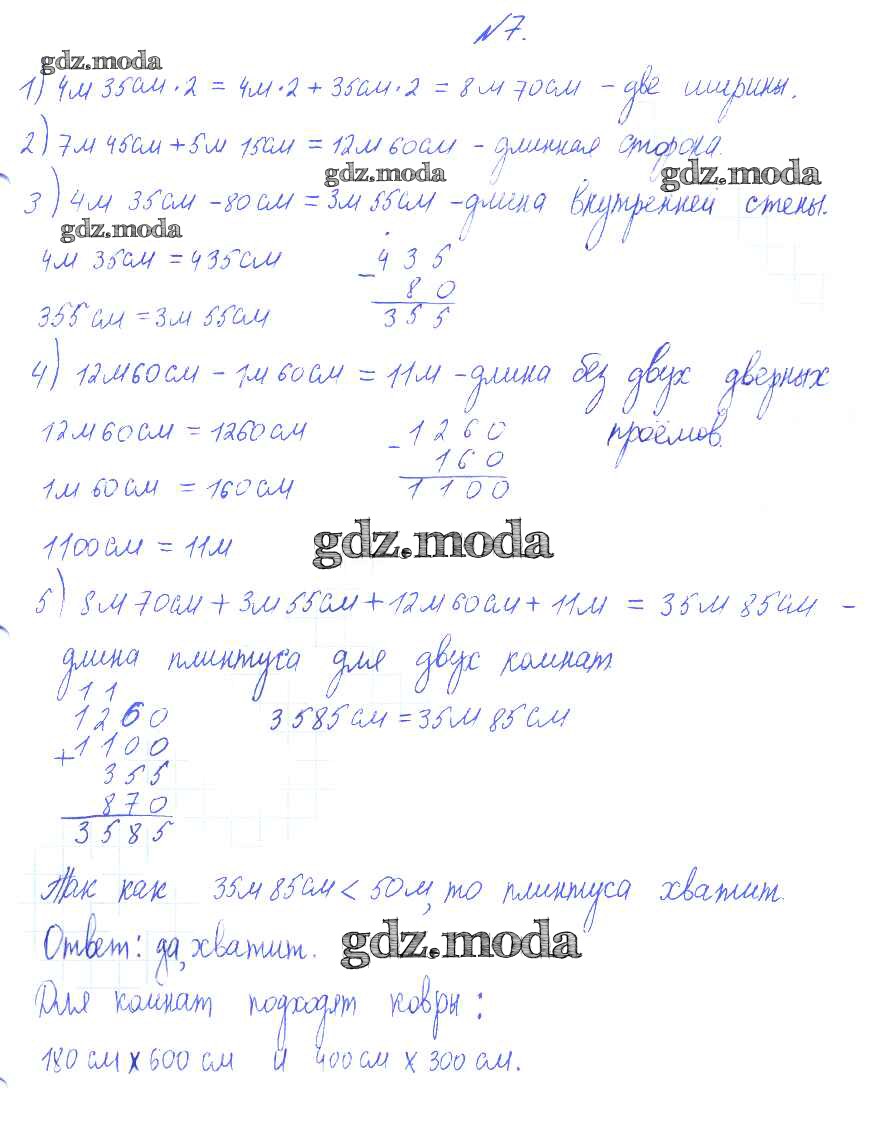 №7.
gdz.moda
1) 4м 35см·2 = 4м·2 + 35см·2 = 8м 70см - две ширины.
2) 7м 45см + 5м 15см = 12м 60см - длинная сторона.
gdz.moda gdz.moda
3) 4м 35см - 80см = 3м 55см - длина внутренней стены.
gdz.moda
4м 35см = 435см - 435
80
355см = 3м 55см 355
4) 12м60см - 1м 60см = 11м - длина без двух дверных
12м 60см = 1260см - 1260 проёмов.
160
1м 60см = 160см 1100
1100см = 11м gdz.moda
5) 8м 70см + 3м 55см + 12м 60см + 11м = 35м 85см -
длина плинтуса для двух комнат
11
1260 3585см = 35м 85см
+ 1100
355
870
3585
Так как 35м 85см < 50м, то плинтуса хватит.
Ответ: да, хватит. gdz.moda
Для комнат подходят ковры:
180 см х 600 см и 400см х 300 см.